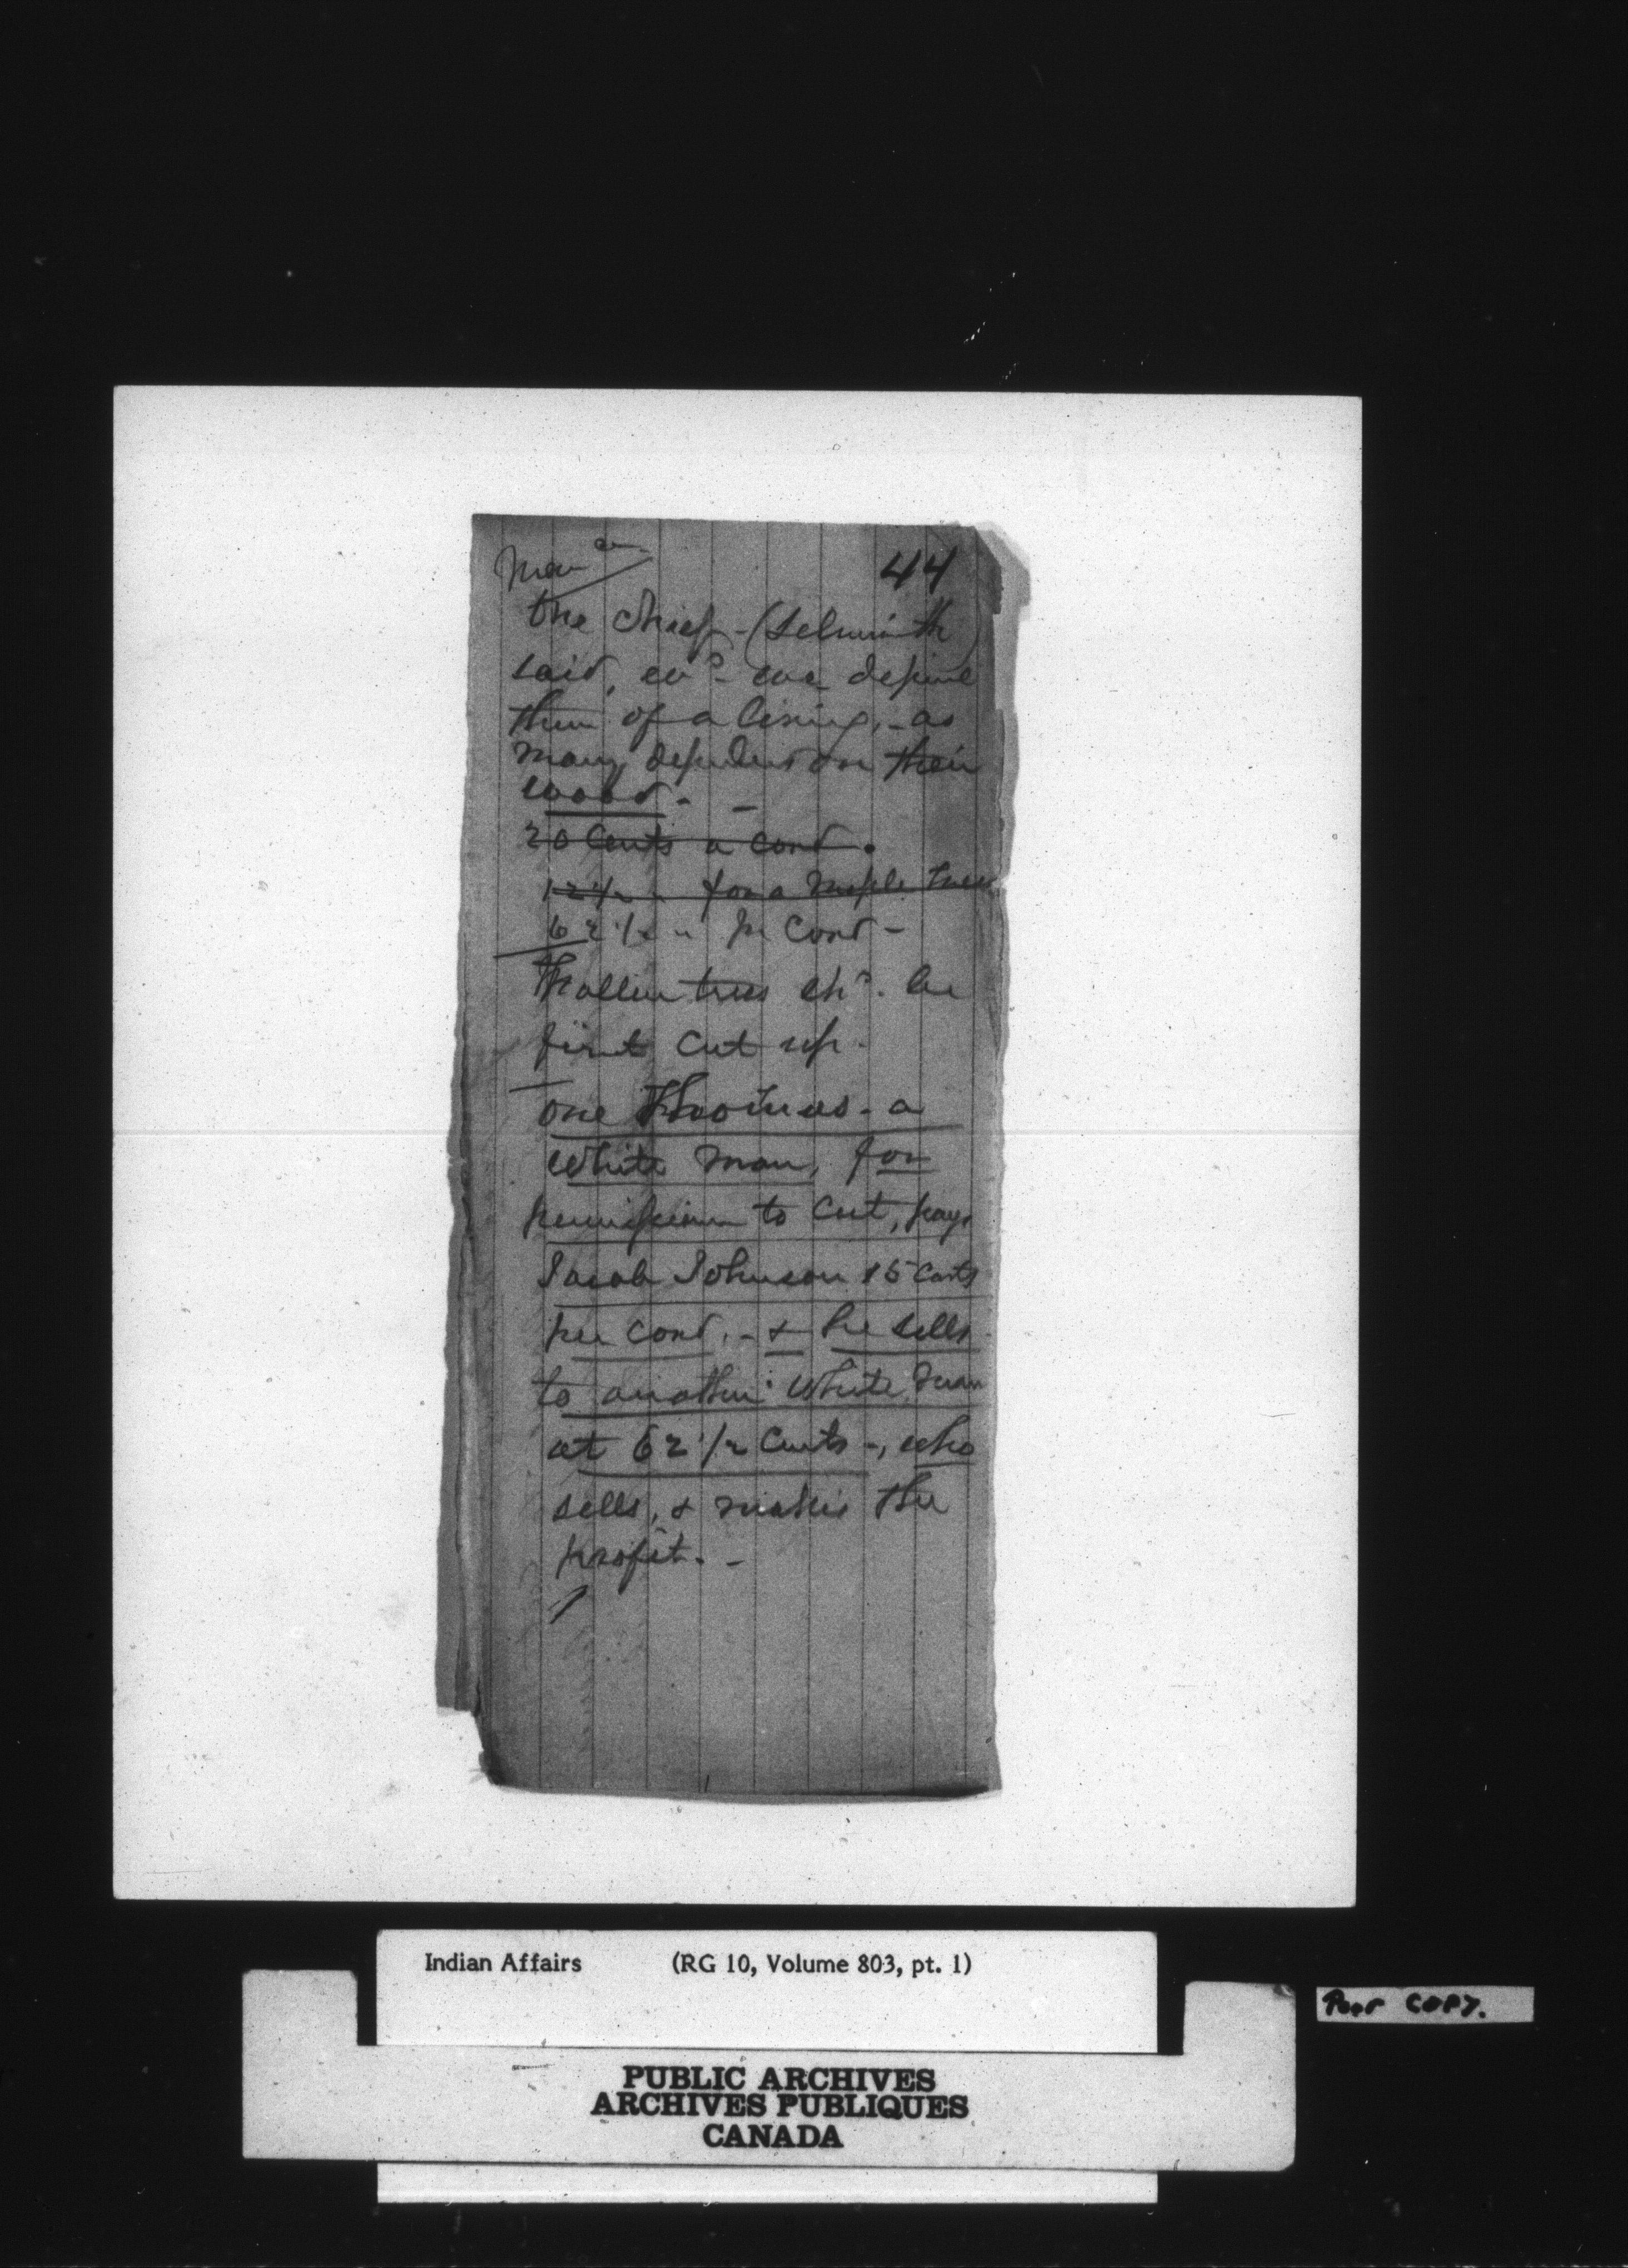 44
the Chief - (Selsmith)
said, wd. we deprive
them of a living, - as
many depended on their
wood. -
20 Cents a Cord.
12 1/2 " for a Maple tree
62 1/2 " pr Cord -
Fallen trees shd. be
first Cut up.
one Thomas - a
White man, for
permission to Cut, pays
Jacob Johnson 15 Cents
per Cord, - & he sells
to another White man
at 62 1/2 Cents -, who
sells, & makes the
profit. -
Indian Affairs (RG 10, Volume 803, pt. 1)
POOR COPY.
PUBLIC ARCHIVES
ARCHIVES PUBLIQUES
CANADA